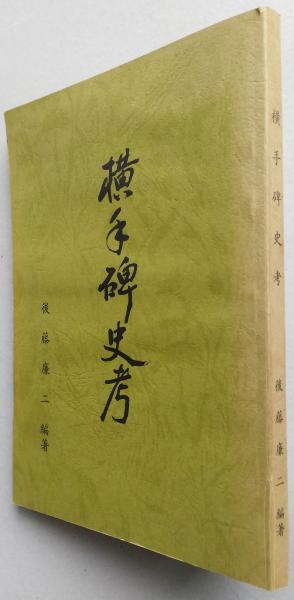 横手碑史考
後藤廉二 編著
横手碑史考
後藤廉二 編著